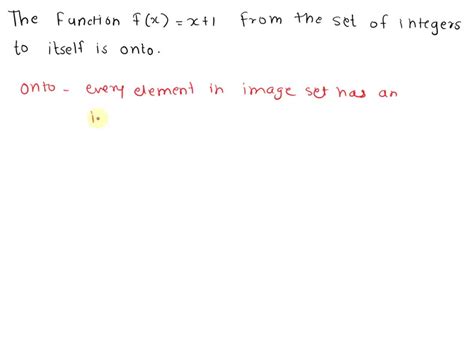 The Function f(x) = x+1 From the set of integers
to itself is onto.
onto - every element in image set has an
i.